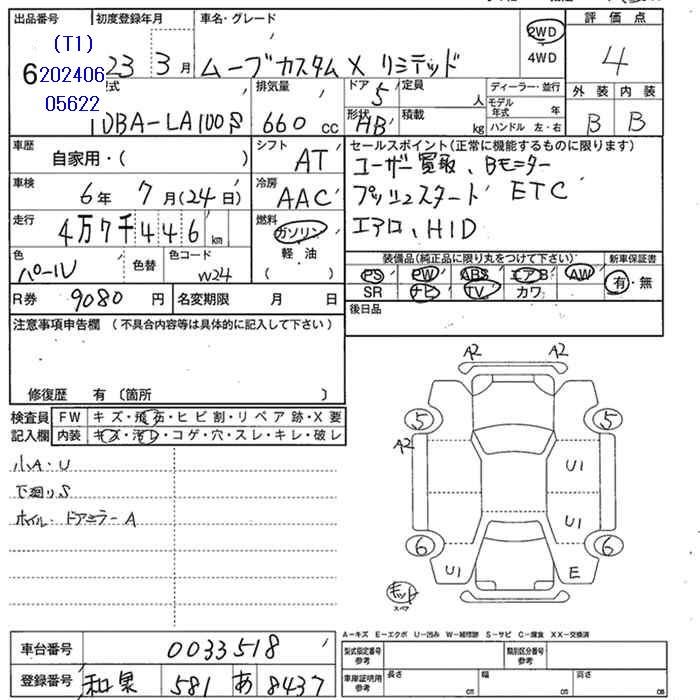 出品番号 初度登録年月 車名・グレード 評価点
(T1)
6 202406
05622
23 3月 ムーブカスタム X リミテッド 2WD 4
4WD
型式 排気量 ドア 5 定員 人 ディーラー・並行 外装 内装
DBA-LA100S 660cc 形状 HB 積載 kg モデル年式 年 B B
ハンドル 左・右
車歴 自家用・( ) シフト AT セールスポイント(正常に機能するものに限ります)
ユーザー買取、Bモニター
車検 6年 7月(24日) 冷房 AAC プッシュスタート ETC
走行 4万7千446km 燃料 ガソリン エアロ、HID
軽油
( )
色 パール 色替 色コード W24 装備品(純正品に限り丸をつけて下さい) 新車保証書
PS PW ABS エアB AW 有・無
SR ナビ TV カワ
R券 9080円 名変期限 月 日 後日品
注意事項申告欄 (不具合内容等は具体的に記入して下さい)
修復歴 有 〔箇所 〕
検査員 FW キズ・飛石・ヒビ割・リペア跡・X要
記入欄 内装 キズ・汚レ・コゲ・穴・スレ・キレ・破レ
小A・U
下廻りS
ホイル・ドアミラーA
A2 A2
5 5
A2
U1
U1
6 6
U1 E
スペア
A-キズ E-エクボ U-凹み W-補修跡 S-サビ C-腐食 XX-交換済
車台番号 0033518 型式指定番号 参考 類別区分番号 参考
登録番号 和泉 581 あ 8437 車庫証明用 参考 長さ cm 幅 cm 高さ cm